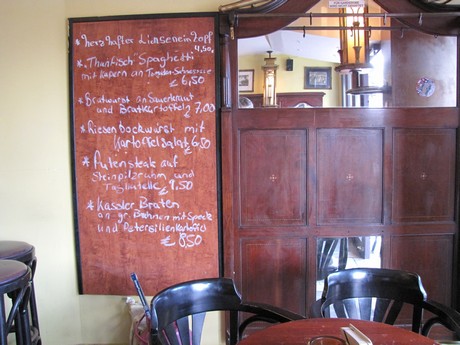 * herzhafter Linseneintopf
4,50
* Thunfisch Spaghetti
mit Kapern an Tomaten-Sahnesauce
€ 6,50
* Bratwurst an Sauerkraut
und Bratkartoffeln € 7,00
* Riesen Bockwurst mit
Kartoffelsalat € 6,50
* Putensteak auf
Steinpilzrahm und
Tagliatelle € 9,50
* Kassler Braten
an gr. Bohnen mit Speck
und Petersilienkartoffel
€ 8,50